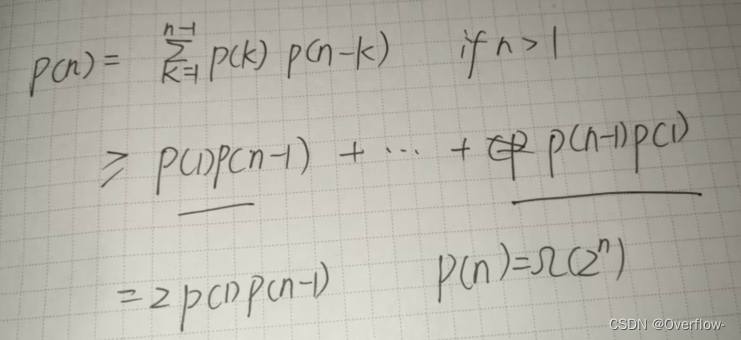 p(n) = \sum_{k=1}^{n-1} p(k) p(n-k) if n > 1
≥ p(1)p(n-1) + ··· + p(n-1)p(1)
= 2 p(1) p(n-1) p(n) = Ω(2^n)
CSDN @Overflow-